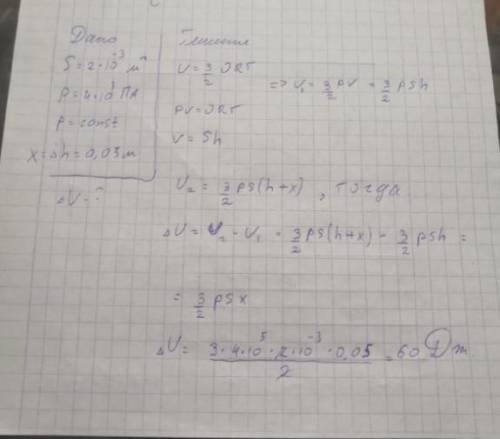 Дано
S = 2·10⁻³ м²
p = 4·10⁵ Па
p = const
x = Δh = 0,05 м
ΔU - ?
Решение
U = 3/2 νRT
pV = νRT
V = Sh
=> U₁ = 3/2 pV = 3/2 pSh
U₂ = 3/2 pS(h+x) , тогда
ΔU = U₂ - U₁ = 3/2 pS(h+x) - 3/2 pSh =
= 3/2 pSx
ΔU = 3·4·10⁵·2·10⁻³·0,05 / 2 = 60 Дж